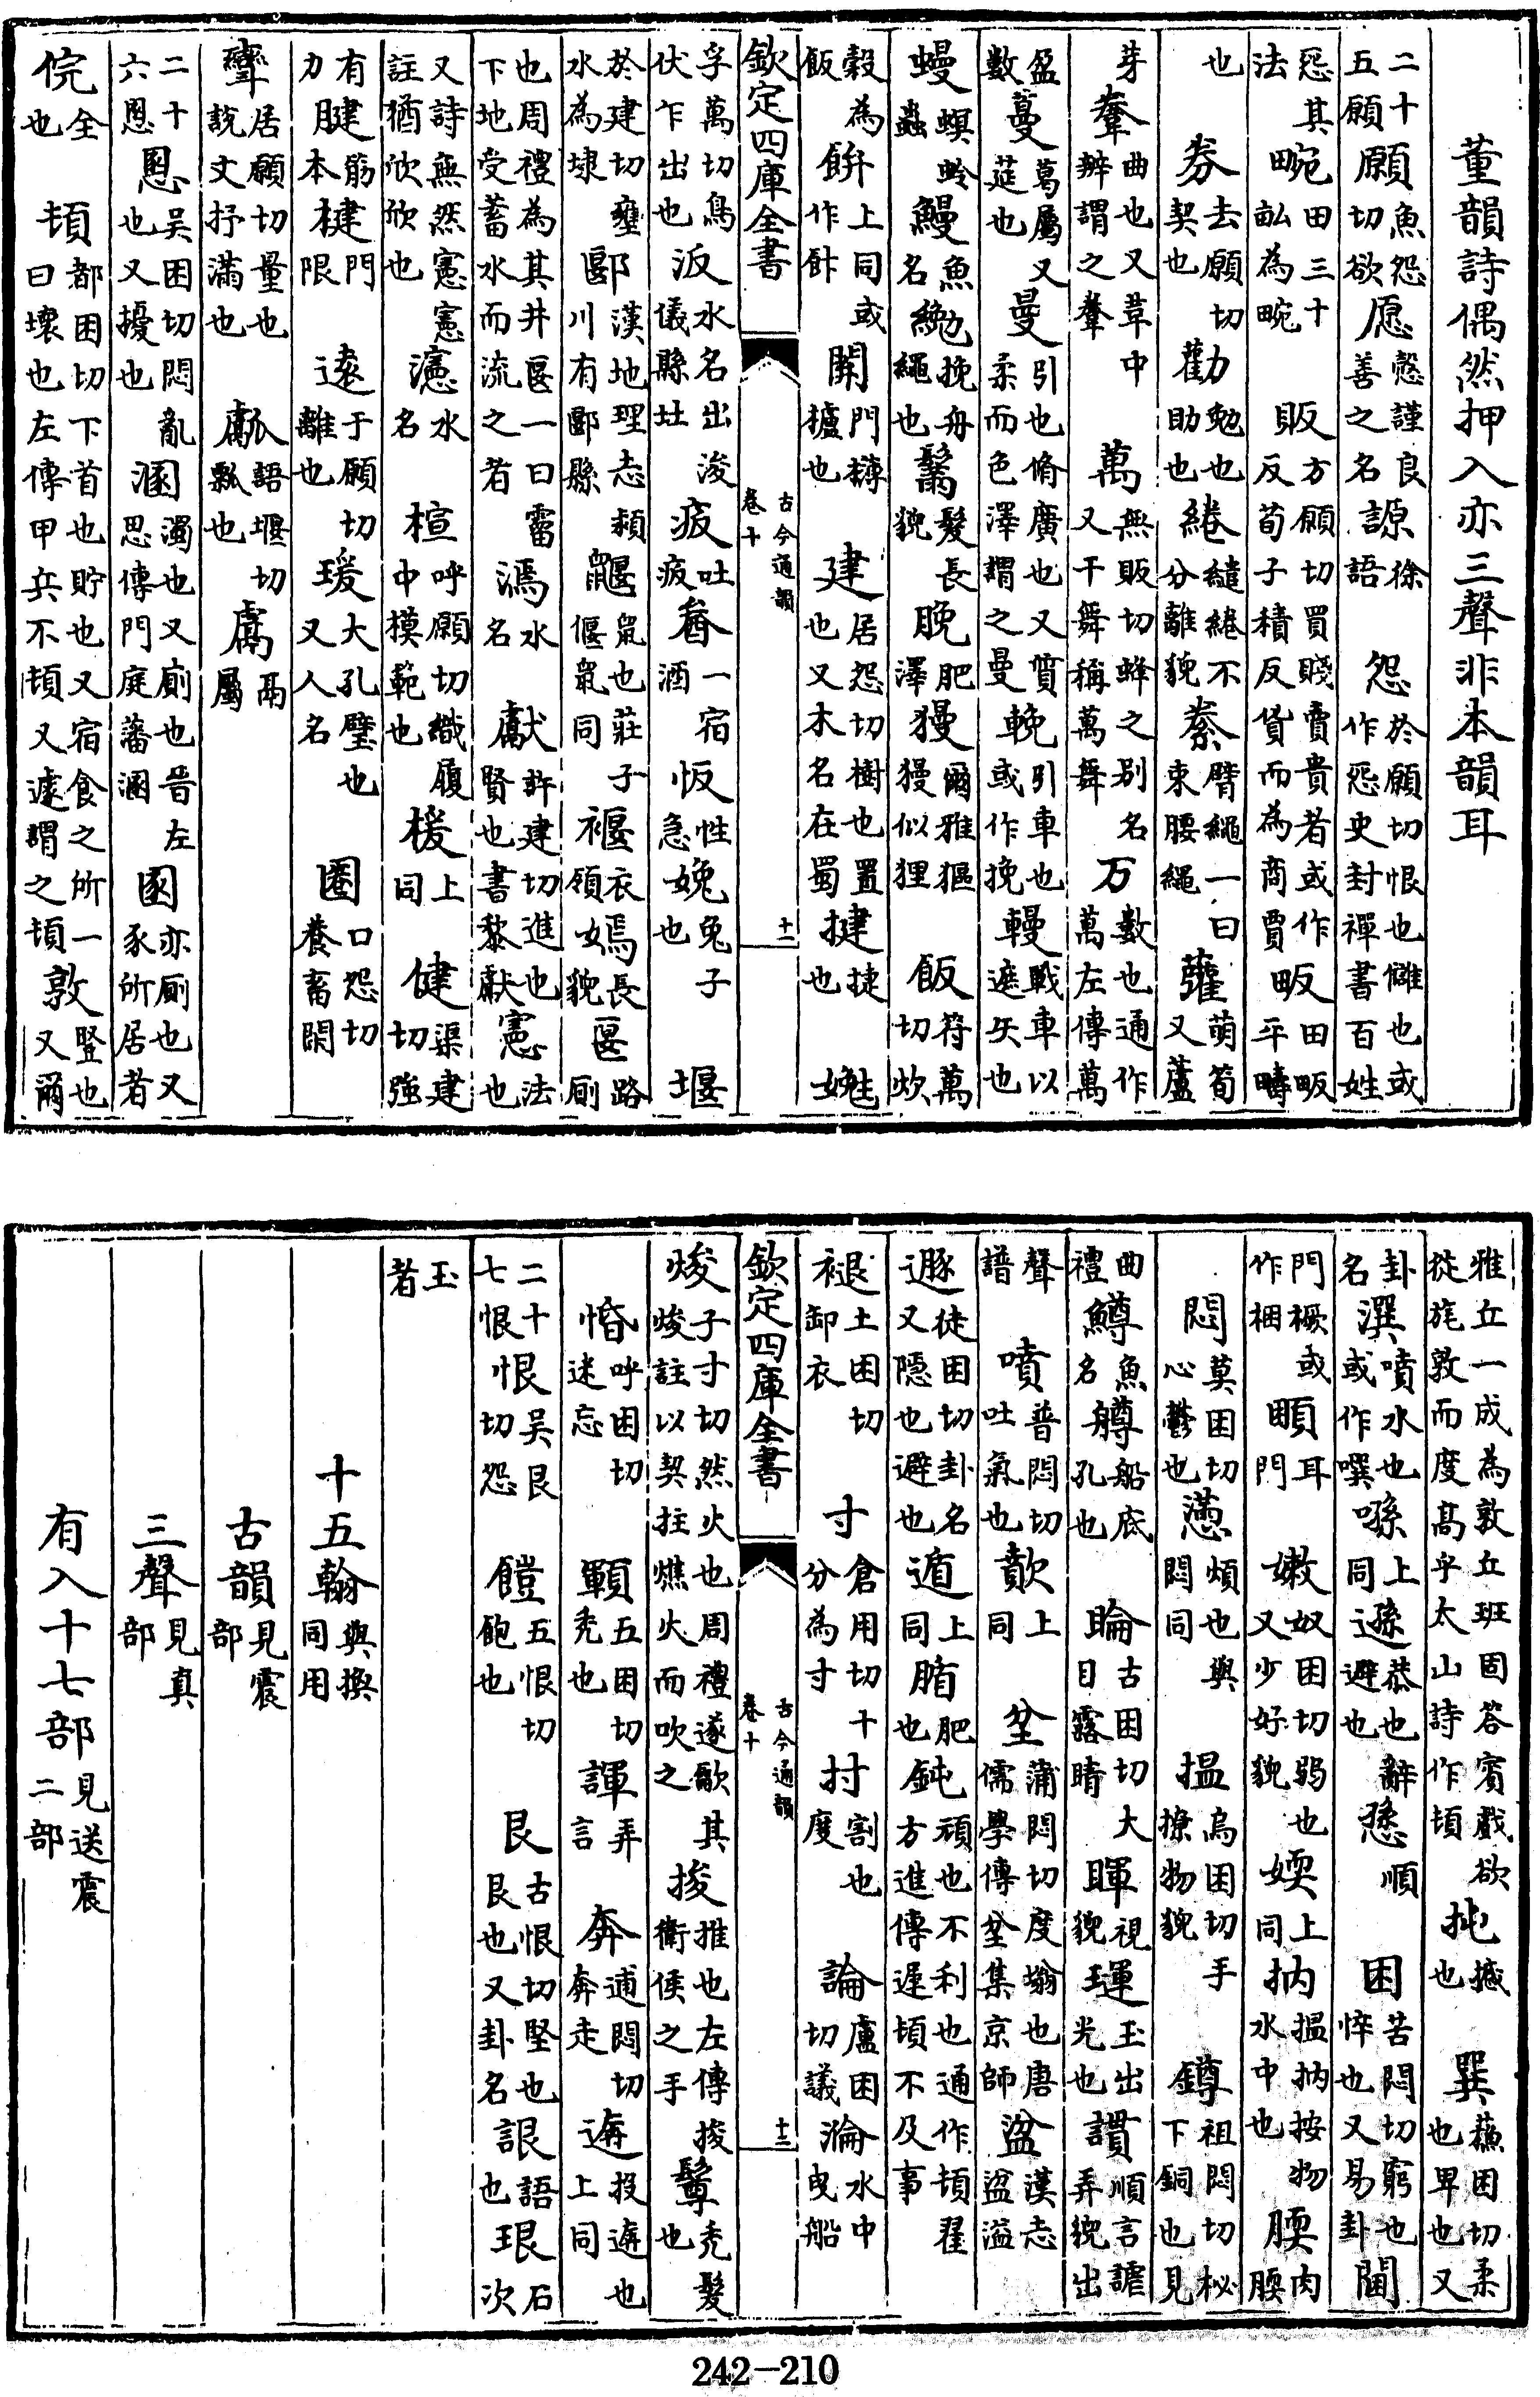 董韻詩偶然押入亦三聲非本韻耳
二十五願願魚怨切欲愿慤謹良善之名謜徐語怨於願切恨也讎也或作惌史封禪書百姓
惌其法畹田三十畝為畹販方願切買賤賣貴者或作反荀子積反貨而為商賈畈田畈平疇
也券去願切契也勸勉也助也綣繾綣不分離貌䊎臂繩一曰束腰繩虇萌筍又蘆
芽韏曲也又革中辨謂之韏萬無販切蜂之別名又干舞稱萬舞万數也通作萬左傳萬
盈數蔓葛屬又莚也曼引也脩廣也又質柔而色澤謂之曼輓引車也或作挽䡬戰車以遮矢也
蟃螟蛉蟲鰻魚名絻挽舟繩也鬗髮長貌脕肥澤獌爾雅貙獌似狸飯符萬切炊
穀為飯餅上同或作飰開門欂櫨也建居怨切樹也置也又木名在蜀揵捷也㝃生
欽定四庫全書 卷十 古今通韻 十一
孚萬切鳥伏乍出也汳水名出浚儀縣𡈽疲吐疲㫪一宿酒恮性急娩兔子也堰
於建切壅水為埭郾漢地理志潁川有郾縣鼴鼠也莊子偃鼠同褗衣領嫣長貌匽路廁
也周禮為其井匽一曰霤下地受蓄水而流之者漹水名獻許建切進也賢也書黎獻憲法也
又詩無然憲憲註猶欣欣也瀗水名楦呼願切織履中模範也楥上同健渠建切強
有力腱筋本楗門限遠于願切離也瑗大孔璧也又人名圈口怨切養畜閑
韏居願切量也說文抒滿也甗語堰切瓢也鬳鬲屬
二十六慁慁吴困切悶亂也又擾也溷濁也又廁也晉左思傳門庭藩溷圂亦廁也又豕所居者
俒全也頓都困切下首也貯也又宿食之所一曰壞也左傳甲兵不頓又遽謂之頓敦豎也又爾
雅丘一成為敦丘班固答賓戲欲從旄敦而度高乎太山詩作頓扽撼也巽蘇困切柔也卑也又
卦名潠噴水也或作噀㗔上同遜恭也辭避也愻順困苦悶切窮也悴也又易卦閫
門橛或作梱顐耳門嫩奴困切弱也又少好貌媆上同抐揾抐按物水中也腝肉腝
悶莫困切心鬱也懣煩也與悶同揾烏困切手撩物貌鐏祖悶切柲下銅也見
曲禮鱒魚名䑳船底孔也睔古困切大目露睛暉視貌璭玉出光也諢順言謔弄貌出
聲譜噴普悶切吐氣也歕上同坌蒲悶切度塕也唐儒學傳坌集京師盆漢志盆溢
遯徒困切卦名又隱也避也遁上同腯肥也鈍頑也不利也通作頓翟方進傳遲頓不及事
褪土困切卸衣寸倉用切十分為寸忖割也度論盧困切議淪水中曳船
欽定四庫全書 卷十 古今通韻 十二
焌子寸切然火也周禮遂歙其焌註以契拄燋火而吹之捘推也左傳捘衛侯之手鬊禿髮也
惛呼困切迷忘顐五困切禿也諢弄言奔逋悶切奔走逩投逩也上同
二十七恨恨吴艮切怨餭五恨切飽也艮古恨切堅也艮也又卦名詪語也珢石次
玉者
十五翰與換同用
古韻見震部
三聲見真部
有入十七部見送震二部
242-210